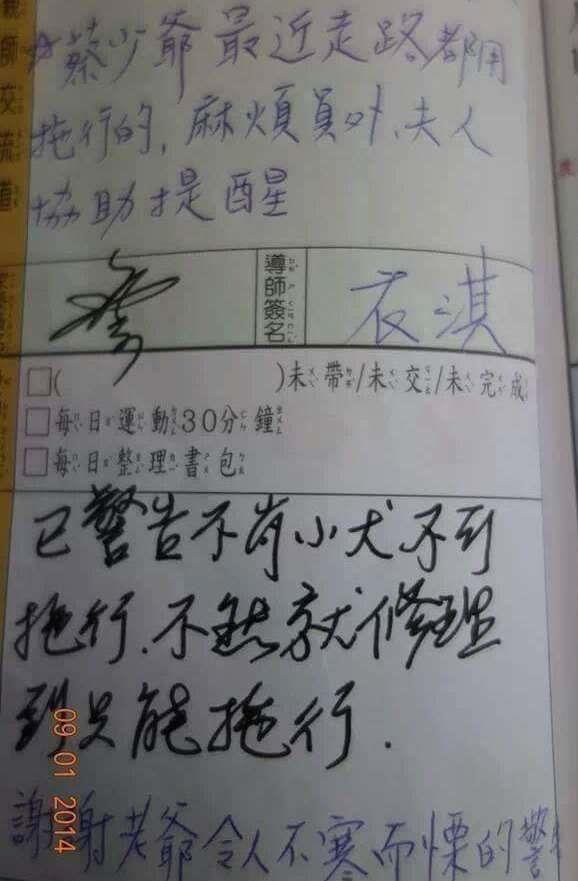 親師交流道
☆蔡少爺最近走路都用
拖行的,麻煩員外、夫人
協助提醒
導師簽名
衣淇
□( )未帶/未交/未完成
□每日運動30分鐘
□每日整理書包
已警告不肖小犬不可
拖行.不然就修理
到只能拖行.
謝謝老爺令人不寒而慄的警
09.01 2014